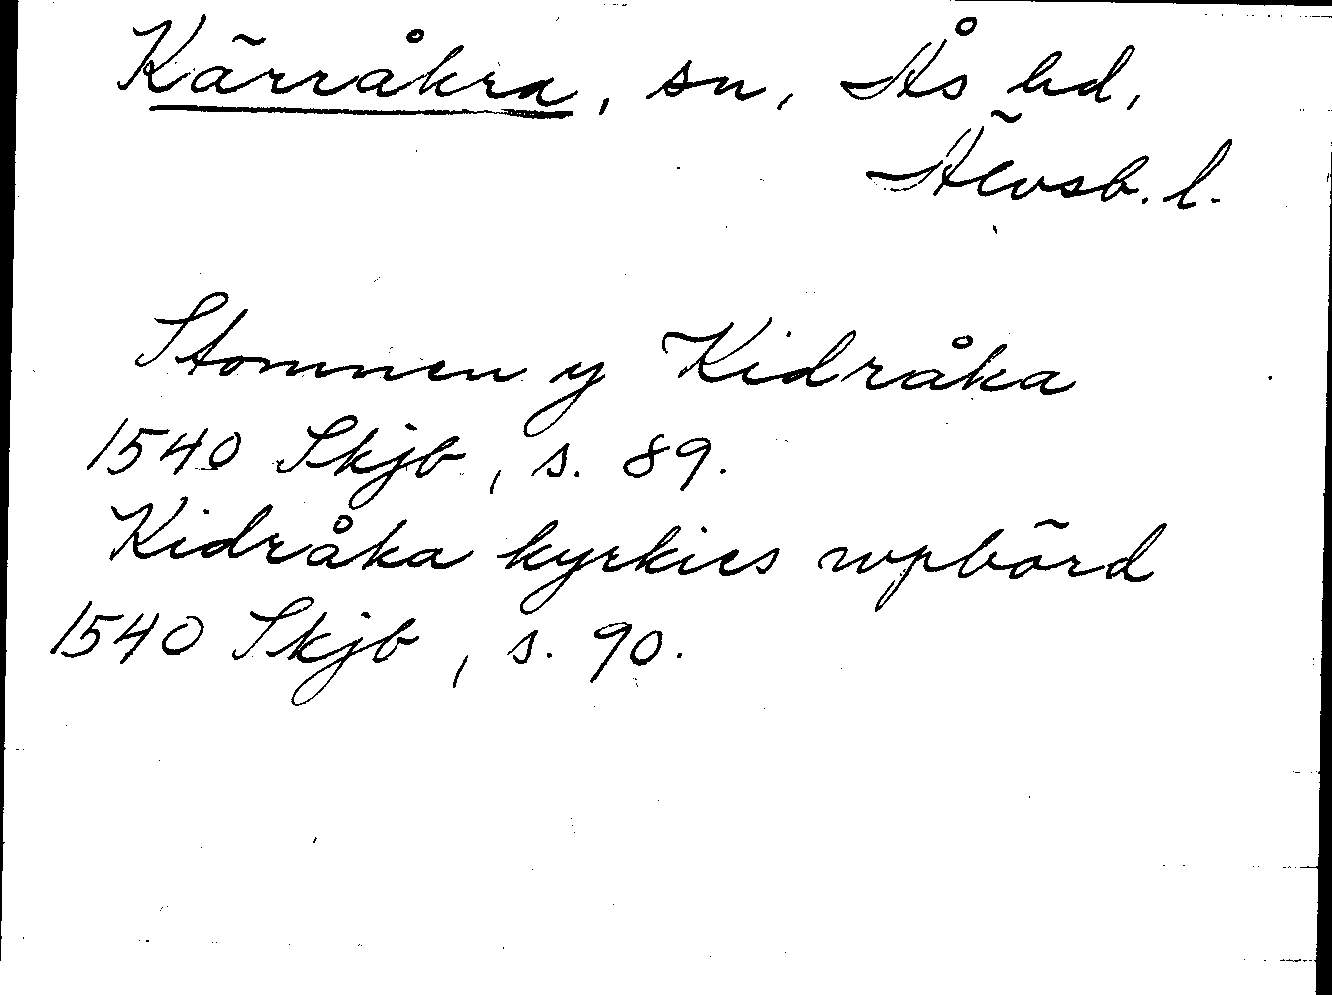 Kärråkra, sn, Ås hd,
Älvsb. l.
Stommen y Kidråka
1540 Skjb, s. 89.
Kidråka kyrkies wpbörd
1540 Skjb, s. 90.